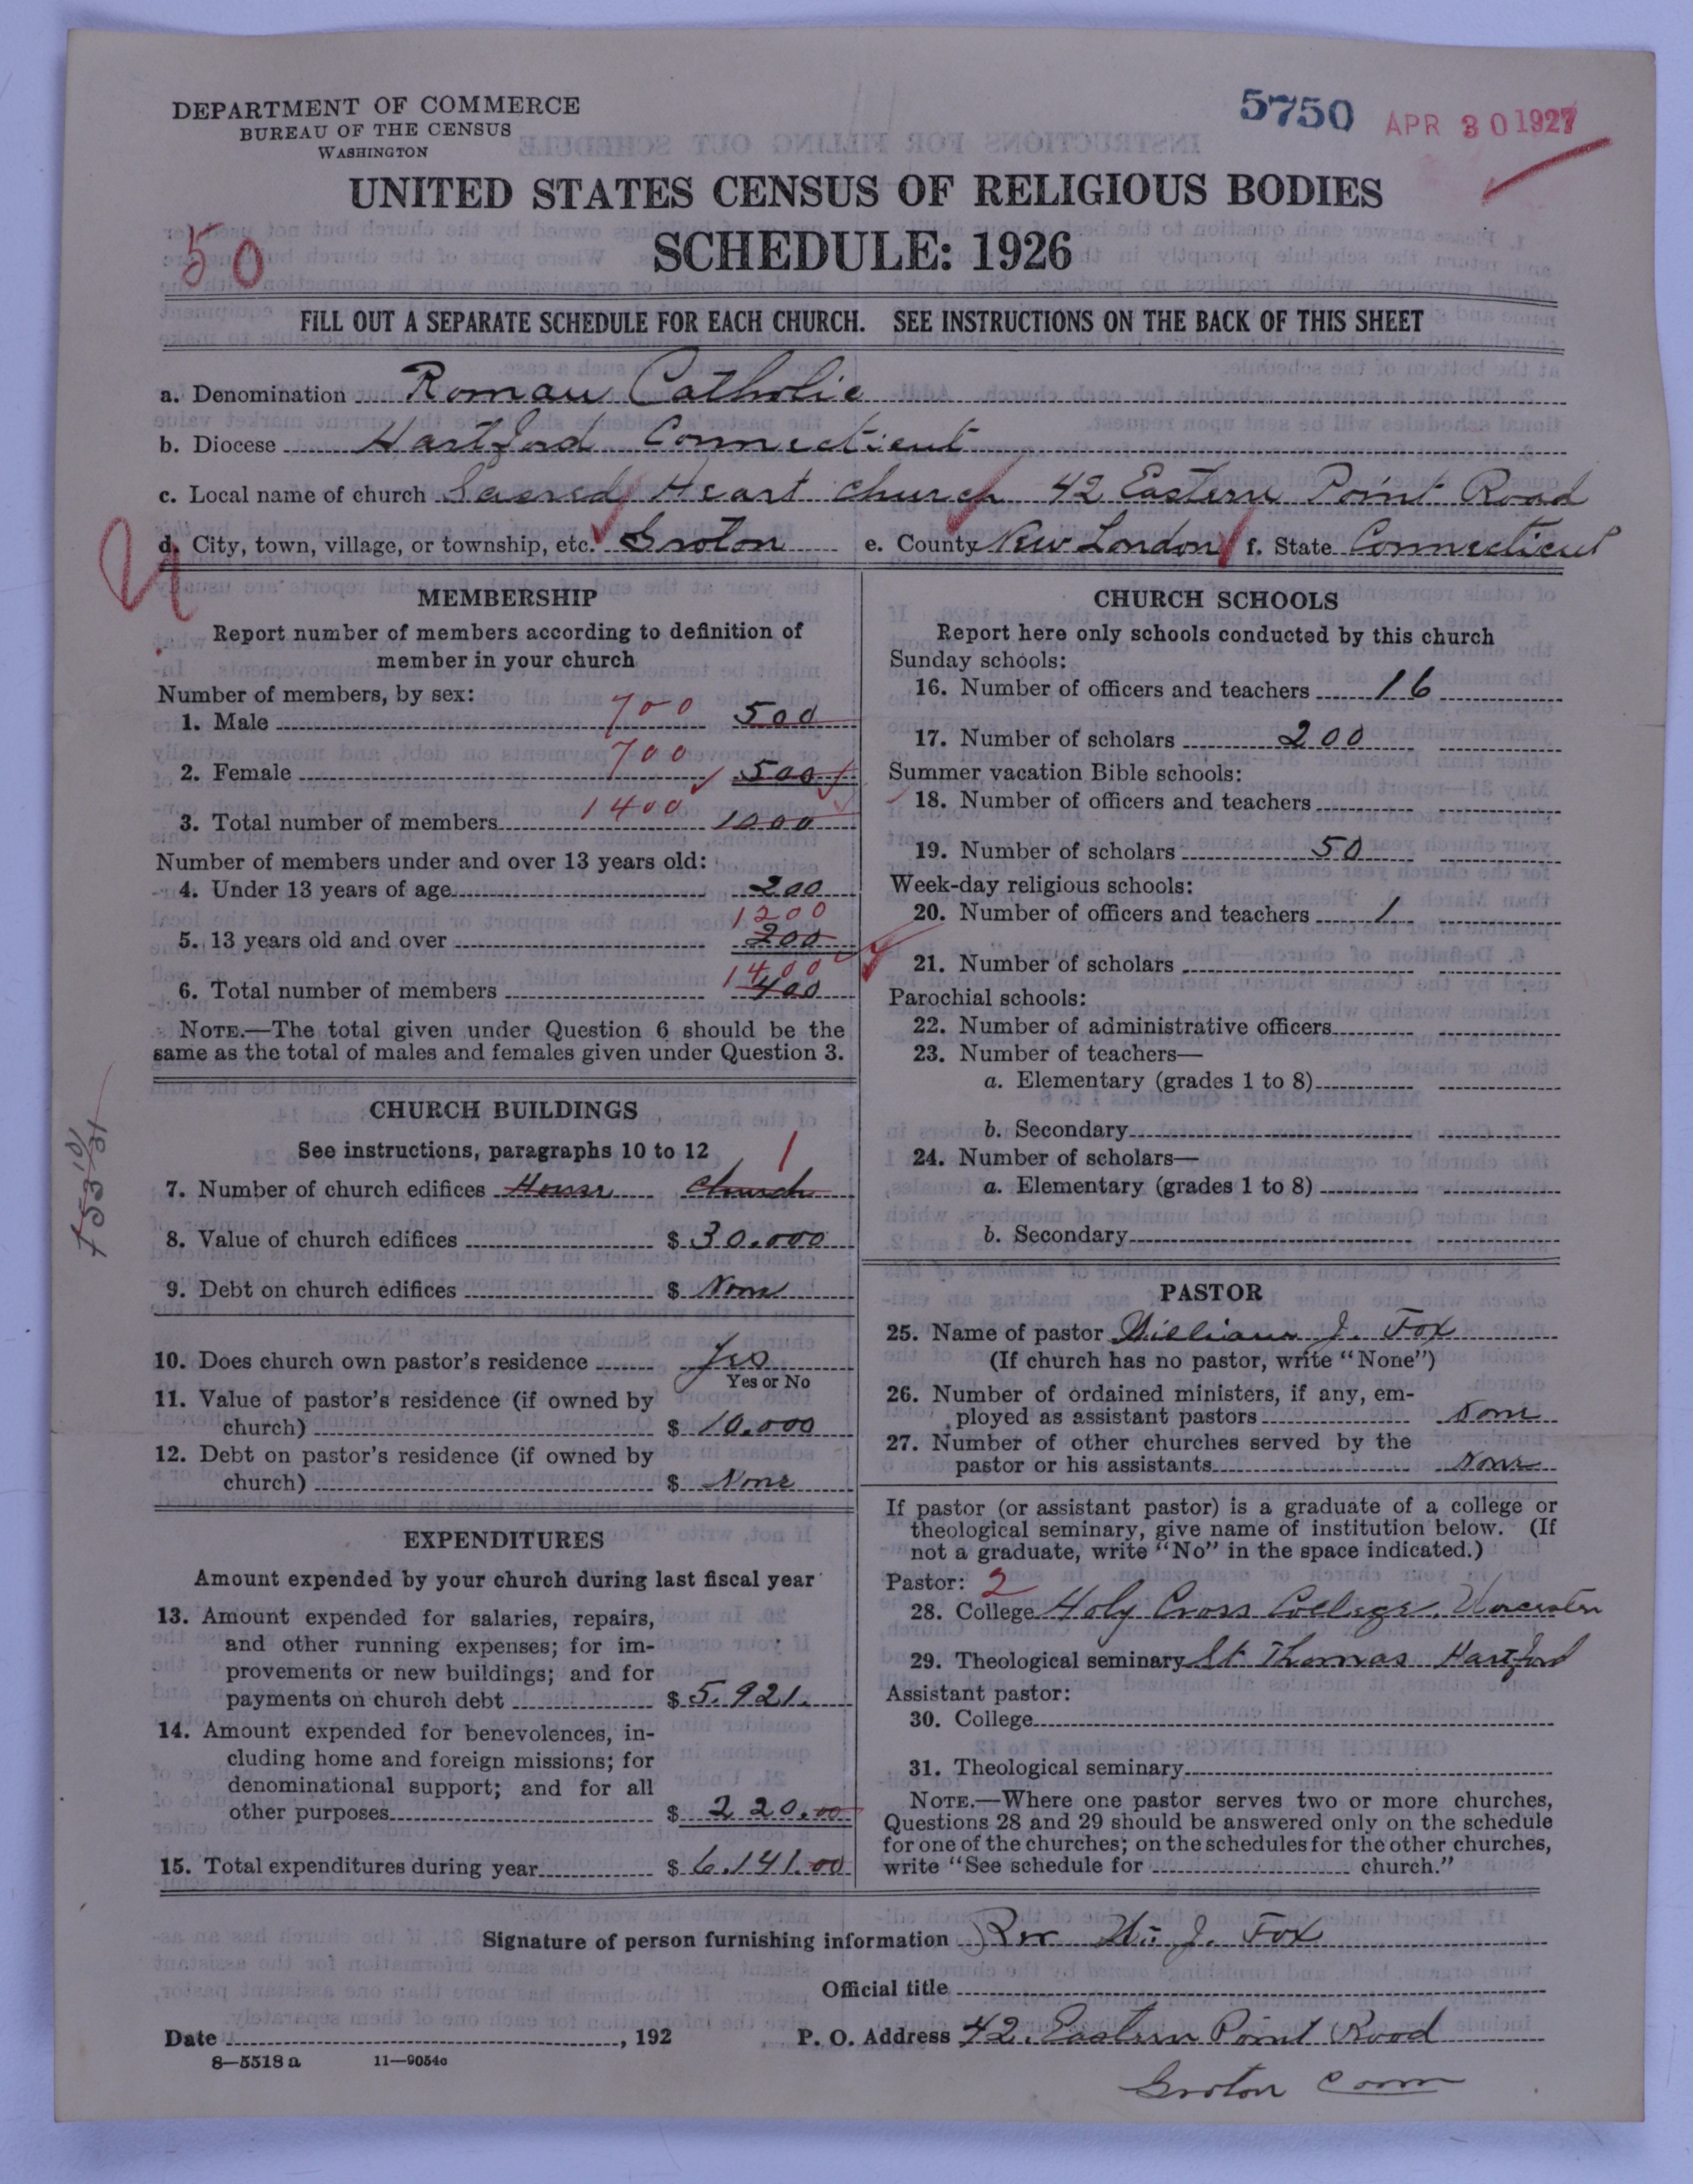 DEPARTMENT OF COMMERCE
BUREAU OF THE CENSUS
WASHINGTON
5750 APR 30 1927
UNITED STATES CENSUS OF RELIGIOUS BODIES
SCHEDULE: 1926
50
FILL OUT A SEPARATE SCHEDULE FOR EACH CHURCH. SEE INSTRUCTIONS ON THE BACK OF THIS SHEET
a. Denomination Roman Catholic
b. Diocese Hartford Connecticut
c. Local name of church Sacred Heart Church 42 Eastern Point Road
d. City, town, village, or township, etc. Groton e. County New London f. State Connecticut
MEMBERSHIP
Report number of members according to definition of
member in your church
Number of members, by sex:
1. Male 700 500
2. Female 700 500
3. Total number of members 1400 1000
Number of members under and over 13 years old:
4. Under 13 years of age 200
1200
5. 13 years old and over 200
1400
6. Total number of members 400
NOTE.—The total given under Question 6 should be the
same as the total of males and females given under Question 3.
CHURCH BUILDINGS
See instructions, paragraphs 10 to 12
1
7. Number of church edifices House Church
8. Value of church edifices $ 30.000
9. Debt on church edifices $ None
10. Does church own pastor's residence Yes
Yes or No
11. Value of pastor's residence (if owned by
church) $ 10.000
12. Debt on pastor's residence (if owned by
church) $ None
EXPENDITURES
Amount expended by your church during last fiscal year
13. Amount expended for salaries, repairs,
and other running expenses; for im-
provements or new buildings; and for
payments on church debt $ 5.921.
14. Amount expended for benevolences, in-
cluding home and foreign missions; for
denominational support; and for all
other purposes $ 220.00
15. Total expenditures during year $ 6.141.00
CHURCH SCHOOLS
Report here only schools conducted by this church
Sunday schools:
16. Number of officers and teachers 16
17. Number of scholars 200
Summer vacation Bible schools:
18. Number of officers and teachers
19. Number of scholars 50
Week-day religious schools:
20. Number of officers and teachers 1
21. Number of scholars
Parochial schools:
22. Number of administrative officers
23. Number of teachers—
a. Elementary (grades 1 to 8)
b. Secondary
24. Number of scholars—
a. Elementary (grades 1 to 8)
b. Secondary
PASTOR
25. Name of pastor William J. Fox
(If church has no pastor, write "None")
26. Number of ordained ministers, if any, em-
ployed as assistant pastors None
27. Number of other churches served by the
pastor or his assistants None
If pastor (or assistant pastor) is a graduate of a college or
theological seminary, give name of institution below. (If
not a graduate, write "No" in the space indicated.)
Pastor: 2
28. College Holy Cross College. Worcester
29. Theological seminary St Thomas Hartford
Assistant pastor:
30. College
31. Theological seminary
NOTE.—Where one pastor serves two or more churches,
Questions 28 and 29 should be answered only on the schedule
for one of the churches; on the schedules for the other churches,
write "See schedule for church."
Signature of person furnishing information Rev Wm J. Fox
Official title
Date , 192 P. O. Address 42. Eastern Point Road
8—5518 a 11—9054c
Groton Conn